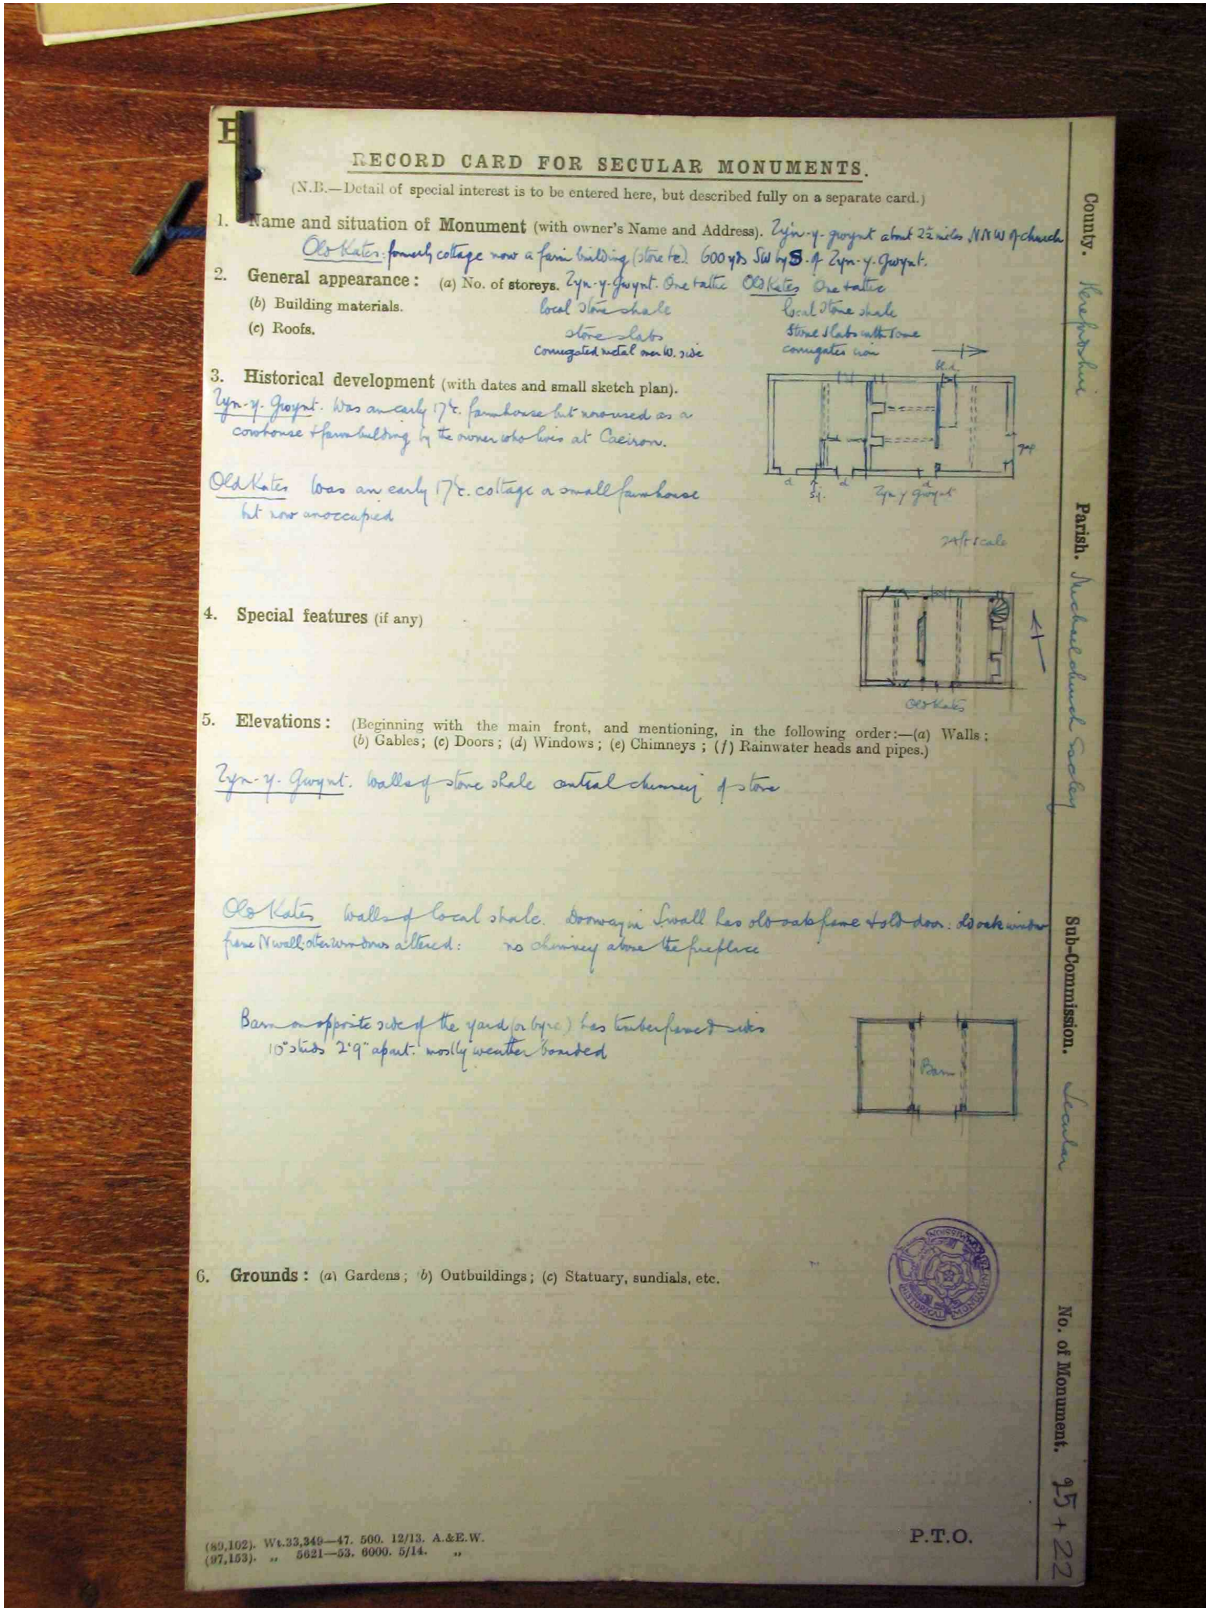 RECORD CARD FOR SECULAR MONUMENTS.
(N.B.—Detail of special interest is to be entered here, but described fully on a separate card.)
1. Name and situation of Monument (with owner's Name and Address). Tyn-y-gwynt about 2½ miles N N W of church
Old Kates: formerly cottage now a farm building (store &c.) 600 yds SW by S. of Tyn-y-Gwynt.
2. General appearance: (a) No. of storeys. Tyn-y-Gwynt. One & attic Old Kates One & attic
(b) Building materials. local stone shale local stone shale
(c) Roofs. stone slabs stone slabs with some
corrugated metal over W. side corrugated iron
3. Historical development (with dates and small sketch plan).
Tyn-y-Gwynt. Was an early 17th c. farmhouse but now used as a
cowhouse & farmbuilding by the owner who lives at Caeiron.
gap
d d d
Tyn y Gwynt
Old Kates Was an early 17th c. cottage or small farmhouse
but now unoccupied
24 ft scale
4. Special features (if any)
Old Kates
5. Elevations: (Beginning with the main front, and mentioning, in the following order:—(a) Walls;
(b) Gables; (c) Doors; (d) Windows; (e) Chimneys; (f) Rainwater heads and pipes.)
Tyn-y-Gwynt. Walls of stone shale central chimney of stone
Old Kates Walls of local shale. Doorway in S. wall has old oak frame & old door: old oak window
frame N wall: other windows altered: no chimney above the fireplace
Barn on opposite side of the yard (or byre) has timber framed sides
10" studs 2'9" apart. mostly weather boarded
Barn
6. Grounds: (a) Gardens; b) Outbuildings; (c) Statuary, sundials, etc.
(89,102). Wt.33,349—47. 500. 12/13. A.&E.W.
(97,153). „ 5621—53. 6000. 5/14. „
P.T.O.
County. Herefordshire
Parish. Michaelchurch Escley
Sub-Commission. Secular
No. of Monument. 25 + 22